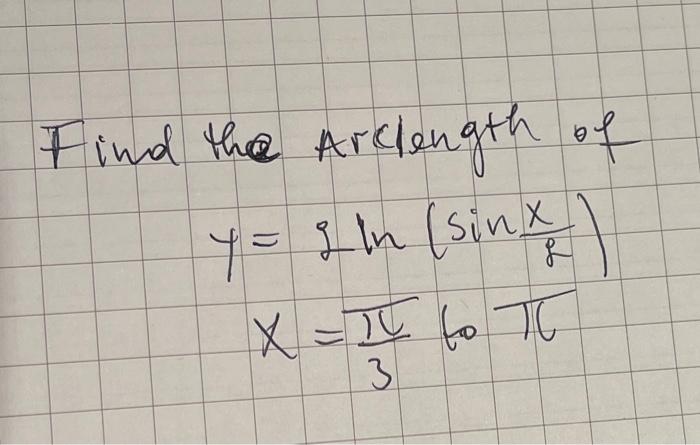 Find the Arclength of
y = 2 ln (sin x/2)
x = π/3 to π